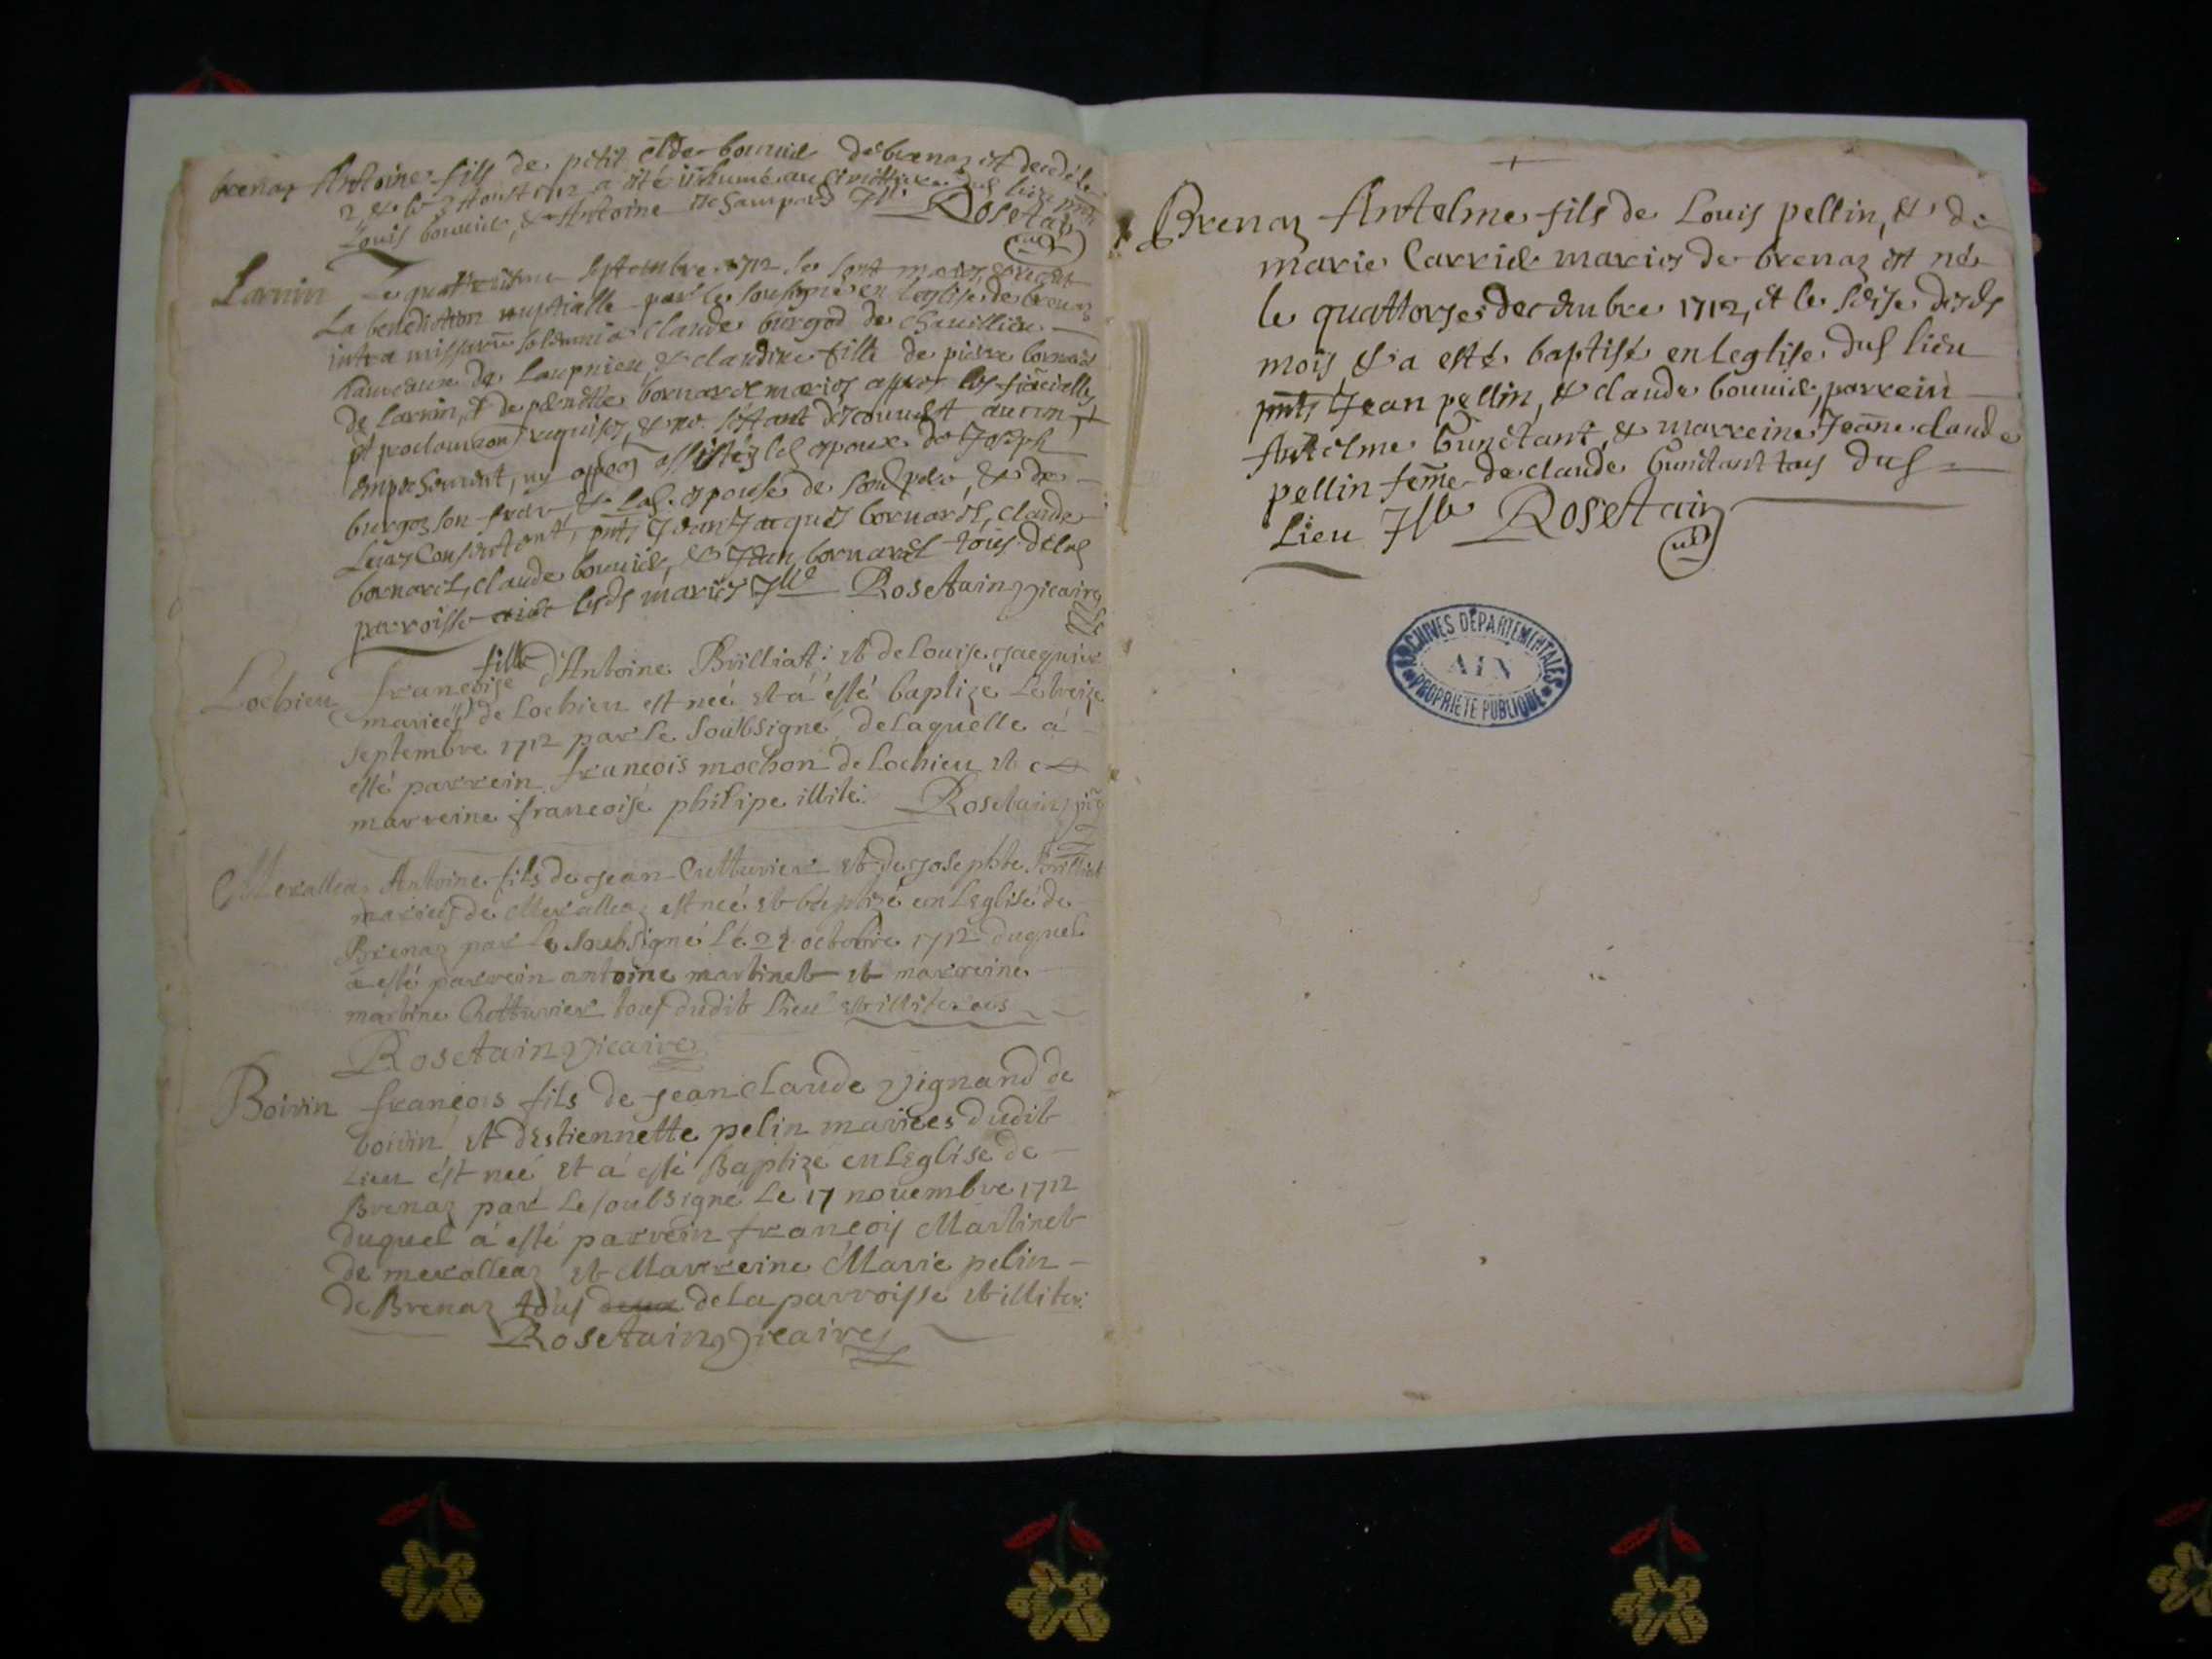 brenaz Antoine fils de petit Cl de bonnid de brenaz est decedé le
2, et le 3 Aoust 1712 a été inhumé au Cimettiere dud lieu pnts
Louis bonnid, & Antoine deschamps Ill. Rosetain
vic
Larnin Le quatrieme septembre 1712 se sont mariés, & receu
La benediction nuptialle par le soussigné en leglise de brenaz
intra missarum solemnia Claude burgod de Chavillieu
hameaux de Loupnieu, & claudine fille de pierre bornard
de Larnin, & de pernette bornard mariez appres les fiancialles
et proclamaon requises, & ne s'estant descouvert aucun
empeschement, ny oppoon assistés led espoux de Joseph
burgoz son frere & lad. espouse de sond pere, & de
Consentant, pnts Jean Jaques bornard, claude
bornard, claude bonnid, & Jean bornard tous delad
parroisse lesds mariés Ille Rosetain vicaire
Lochieu francoise fille d'Antoine Brilliat: et de Louise Jaquier
mariés de Lochieu est neé et a esté baptizé Le treize
septembre 1712 par le soubsigné, de laquelle a
esté parrein francois mochon de Lochieu et
marreine francoise philipe illite: Rosetain vic
Meraleaz Antoine fils de Jean Cutturier et de Josephte Brilliat
maries de Meralleaz est neé et baptizé en Leglise de
Brenaz par le soubsigné Le 21 octobre 1712 duquel
a esté parrein antoine martinet et marreine
martine Cutturier tous dudit lieu et illiteres
Rosetain vicaire
Boirin francois fils de Jean Claude Vignand de
boirin et destiennette pelin mariees dudit
Lieu est neé et a esté Baptizé en Leglise de
Brenaz par Le soubsigné Le 17 nouembre 1712
duquel a esté parrein francois Martinet
de meralleaz et Marreine Marie pelin
de Brenaz tous de La parroisse et illiter:
Rosetain vicaire
Brenaz Antelme fils de Louis pellin, & de
marie Carrid mariés de brenaz est né
le quattorse decembre 1712, et le seise desds
mois & a esté baptisé en leglise dud lieu
pnts Jean pellin, & claude bonnid, parrein
Antelme bunetant, & marreine Jeane claude
pellin feme de claude bunetant tous dud
Lieu Ille Rosetain
vic
ARCHIVES DÉPARTEMENTALES
AIN
PROPRIÉTÉ PUBLIQUE